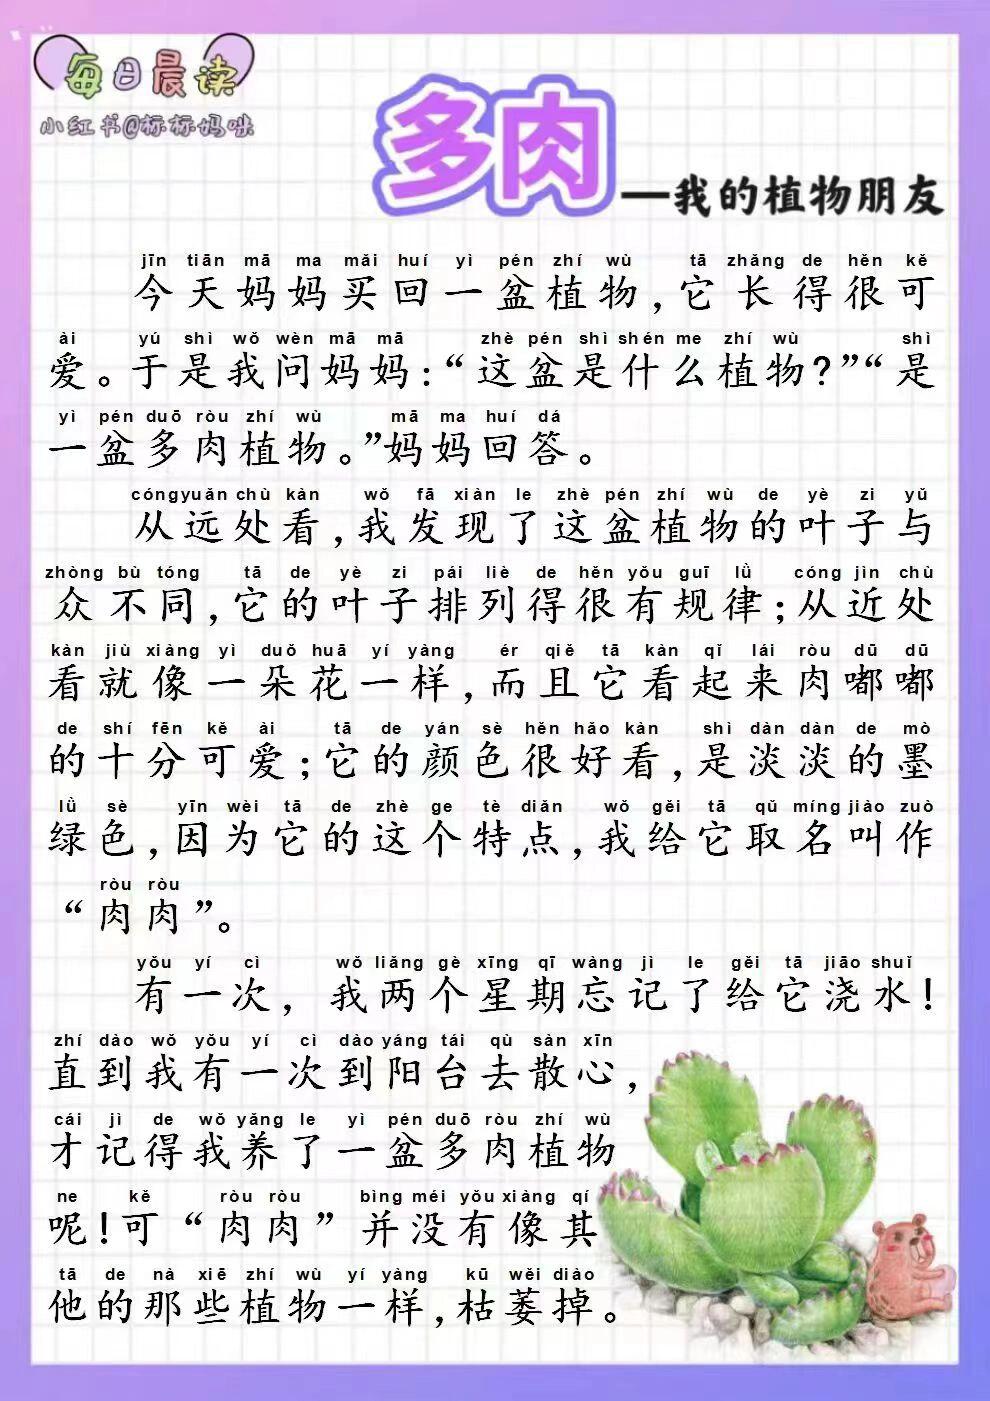 每日晨读
小红书@标标妈咪
多肉
—我的植物朋友
jīn tiān mā ma mǎi huí yì pén zhí wù tā zhǎng de hěn kě
今天妈妈买回一盆植物,它长得很可
ài yú shì wǒ wèn mā mā zhè pén shì shén me zhí wù shì
爱。于是我问妈妈:“这盆是什么植物?”“是
yì pén duō ròu zhí wù mā ma huí dá
一盆多肉植物。”妈妈回答。
cóng yuǎn chù kàn wǒ fā xiàn le zhè pén zhí wù de yè zi yǔ
从远处看,我发现了这盆植物的叶子与
zhòng bù tóng tā de yè zi pái liè de hěn yǒu guī lǜ cóng jìn chù
众不同,它的叶子排列得很有规律;从近处
kàn jiù xiàng yì duǒ huā yí yàng ér qiě tā kàn qǐ lái ròu dū dū
看就像一朵花一样,而且它看起来肉嘟嘟
de shí fēn kě ài tā de yán sè hěn hǎo kàn shì dàn dàn de mò
的十分可爱;它的颜色很好看,是淡淡的墨
lǜ sè yīn wèi tā de zhè ge tè diǎn wǒ gěi tā qǔ míng jiào zuò
绿色,因为它的这个特点,我给它取名叫作
ròu ròu
“肉肉”。
yǒu yí cì wǒ liǎng gè xīng qī wàng jì le gěi tā jiāo shuǐ
有一次,我两个星期忘记了给它浇水!
zhí dào wǒ yǒu yí cì dào yáng tái qù sàn xīn
直到我有一次到阳台去散心,
cái jì de wǒ yǎng le yì pén duō ròu zhí wù
才记得我养了一盆多肉植物
ne kě ròu ròu bìng méi yǒu xiàng qí
呢!可“肉肉”并没有像其
tā de nà xiē zhí wù yí yàng kū wěi diào
他的那些植物一样,枯萎掉。